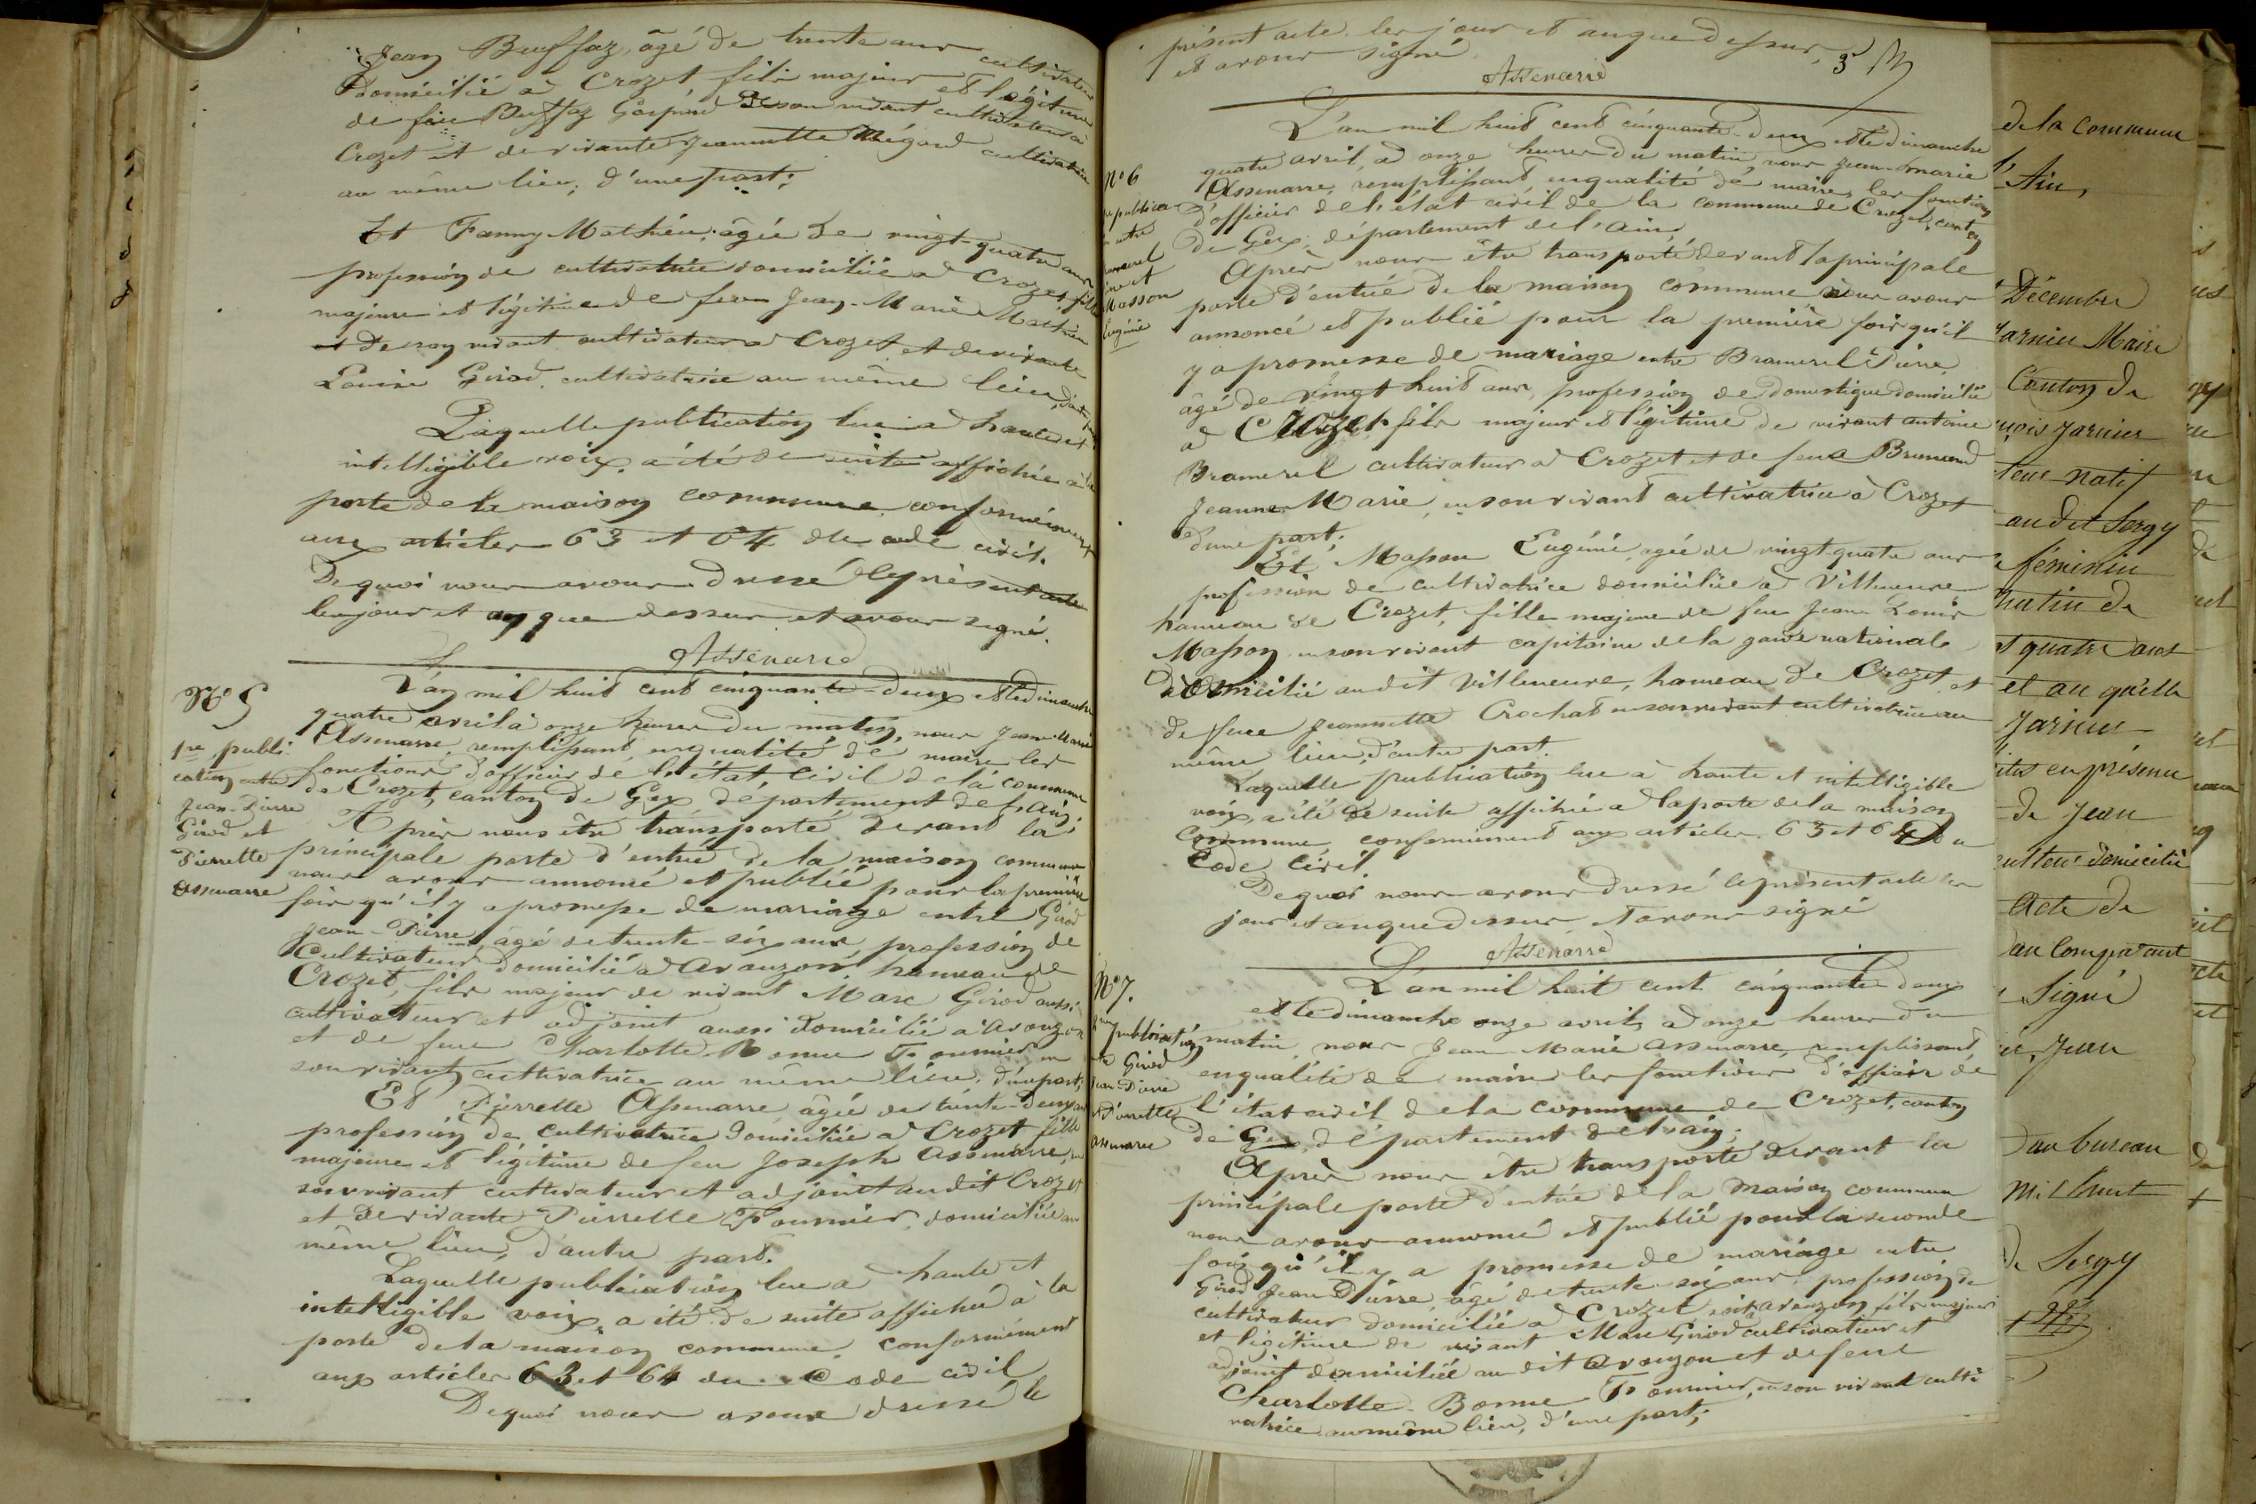 Jean Buffaz, âgé de trente ans cultivateur
domicilié à Crozet fils majeur et légitime
de feu Buffaz Gaspard de son vivant cultivateur à
Crozet et de vivante Jeannette Mégard cultivatrice
au même lieu, d'une part;
Et Fanny Mathieu, âgée de vingt-quatre ans
profession de cultivatrice domiciliée à Crozet, fille
majeure et légitime de feu Jean-Marie Mathieu
de son vivant cultivateur à Crozet et de vivante
Louise Girod, cultivatrice au même lieu, d'autre
Laquelle publication lue à haute et
intelligible voix, a été de suite affichée à la
porte de la maison commune, conformément
aux articles 63 et 64 du code civil.
De quoi nous avons dressé le présent acte
les jour et an que dessus et avons signé.
Assenarre
No 5
1re publi
cation entre
Jean-Pierre
Girod et
Pierrette
Assenarre
L'an mil huit cent cinquante-deux et le dimanche
quatre avril à onze heures du matin, nous Jean-Marie
Assenarre, remplissant en qualité de maire les
fonctions d'officier de l'état civil de la commune
de Crozet, canton de Gex, département de l'ain;
Après nous être transporté devant la
principale porte d'entrée de la maison commune
nous avons annoncé et publié pour la première
fois qu'il y a promesse de mariage entre Girod
Jean-Pierre, âgé de trente-six ans, profession de
Cultivateur domicilié à Avouzon, hameau de
Crozet, fils majeur de vivant Marc Girod aussi
cultivateur et adjoint aussi domicilié à Avouzon
et de feue Charlotte Bonne Fournier en
son vivant cultivatrice au même lieu, d'une part;
Et Pierrette Assenarre âgée de trente-deux ans
profession de cultivatrice domiciliée à Crozet fille
majeure et légitime de feu Joseph Assenarre, en
son vivant cultivateur et adjoint audit Crozet
et de vivante Pierrette Fournier, domiciliée au
même lieu, d'autre part.
Laquelle publication lue à haute et
intelligible voix, a été de suite affichée à la
porte de la maison commune, conformément
aux articles 63 et 64 du Code civil
De quoi nous avons dressé le
présent acte les jour et an que dessus,
et avons signé
3e
Assenarre
No 6
publica
entre
Bramerel
et
Masson
Eugénie
L'an mil huit cent cinquante-deux et le dimanche
quatre avril, à onze heures du matin, nous Jean-Marie
Assenarre, remplissant en qualité de maire, les fonctions
d'officier de l'état civil de la commune de Crozet, canton
de Gex, département de l'ain,
Après nous être transporté devant la principale
porte d'entrée de la maison commune nous avons
annoncé et publié pour la première fois qu'il
y a promesse de mariage entre Bramerel Pierre,
âgé de vingt huit ans, profession de domestique domicilié
à Crozet fils majeur et légitime de vivant antoine
Bramerel cultivateur à Crozet et de feue Brunend
Jeanne Marie, en son vivant cultivatrice à Crozet
d'une part;
Et Masson Eugénie, agée de vingt-quatre ans
profession de cultivatrice domiciliée à Villeneuve
hameau de Crozet, fille majeure de feu Jean Louis
Masson en son vivant capitaine de la garde nationale
domicilié audit Villeneuve, hameau de Crozet, et
de feue Jeannette Crochat en son vivant cultivatrice au
même lieu, d'autre part.
Laquelle publication lue à haute et intelligible
voix, a été de suite affichée à la porte de la maison
commune, conformément aux articles 63 et 64 du
Code civil
De quoi nous avons dressé le présent acte les
jour et an que dessus, et avons signé
Assenarre
No 7.
publication
Girod
Jean Pierre
Pierrette
Assenarre
L'an mil huit cent cinquante deux
et le dimanche onze avril, à onze heures du
matin, nous Jean-Marie Assenarre, remplissant
en qualité de maire les fonctions d'officier de
l'état civil de la commune de Crozet, canton
de Gex, département de l'ain;
Après nous être transporté devant la
principale porte d'entrée de la maison commune
nous avons annoncé et publié pour la seconde
fois qu'il y a promesse de mariage entre
Girod Jean Pierre, âgé de trente-six ans, profession de
cultivateur domicilié à Crozet, soit avouzon, fils majeur
et légitime de vivant Marc Girod cultivateur et
adjoint domicilié au dit avouzon et de feue
Charlotte Bonne Fournier, en son vivant culti
vatrice au même lieu, d'une part;
de la commune
Ain,
Décembre
Jarnier Maire
Canton de
Jarnier
natif
au dit Sergy
féminin
matin de
quatre ans
et au quelle
Jarnier
en présence
de Jean
domicilié
acte de
au Comparant
Signé
Jean
au bureau
Mil huit
de Sergy